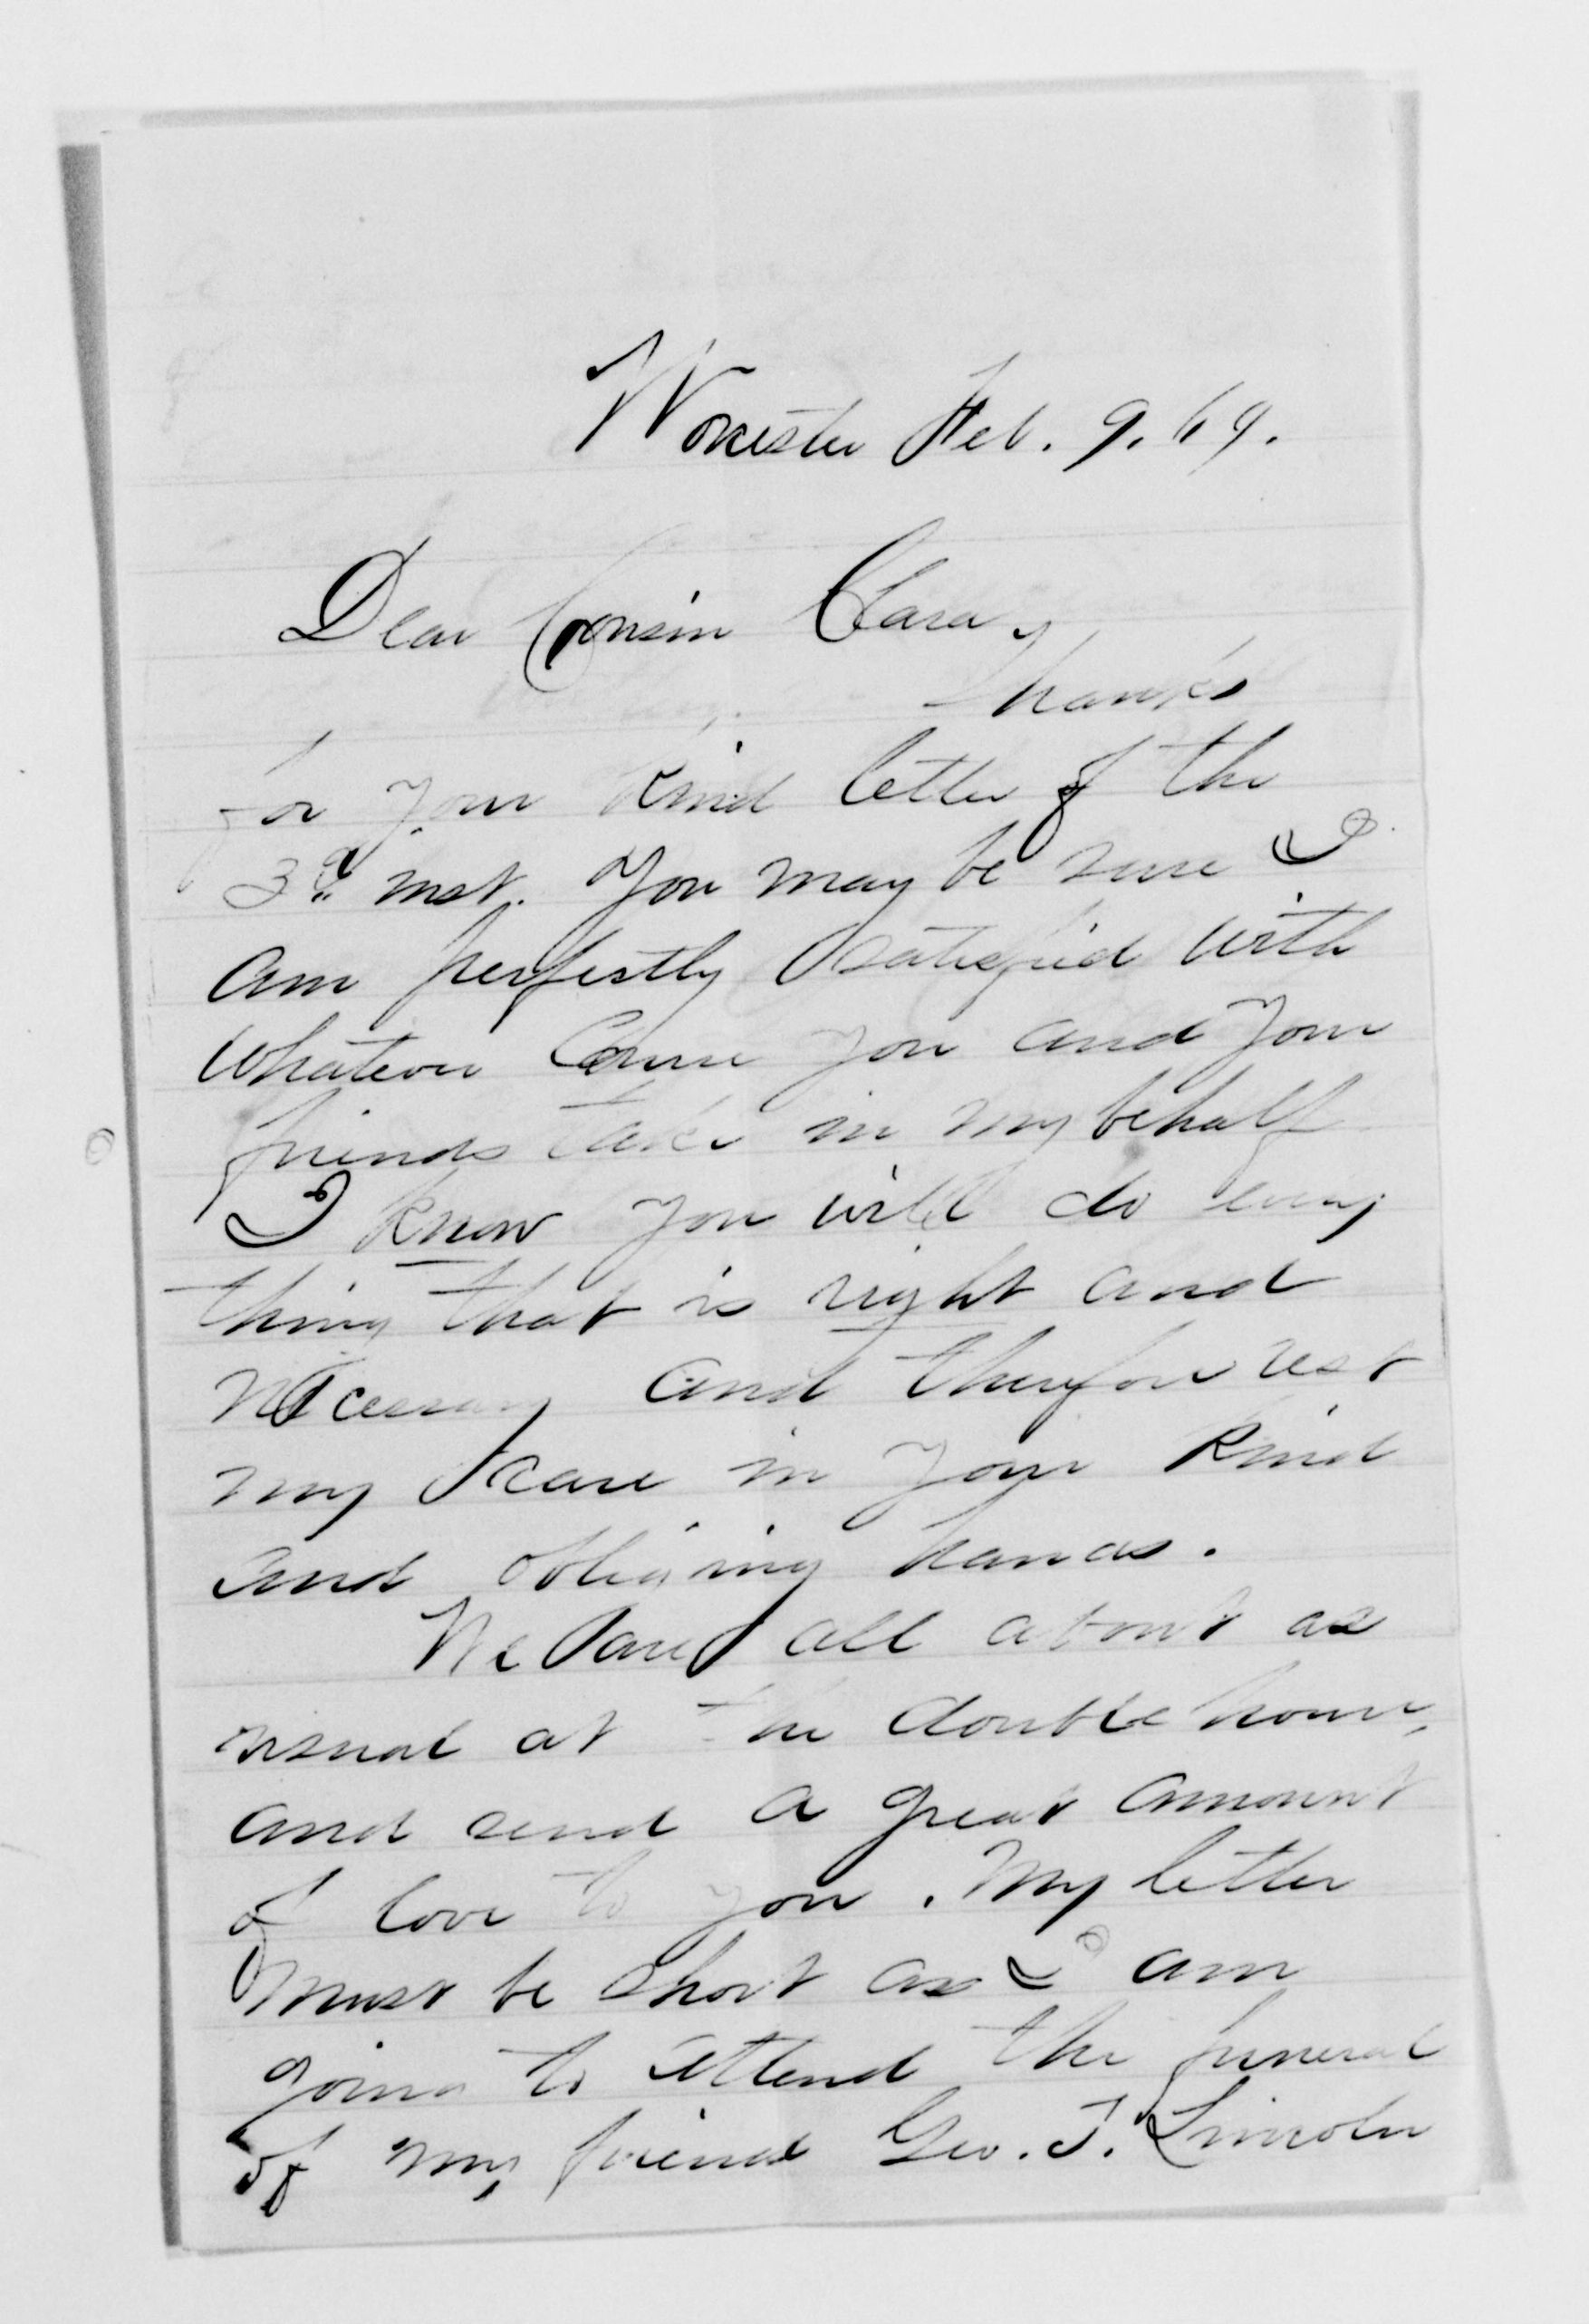 Worcester Feb. 9. 69.
Dear Cousin Clara,
Thanks
for your kind letter of the
3d inst. You may be sure I
am perfectly satisfied with
whatever course you and your
friends take in my behalf
I know you will do every
thing that is right and
necessary and therefore rest
my case in your kind
and obliging hands.
We are all about as
usual at the double house,
and send a great amount
of love to you. My letter
must be short as I am
going to attend the funeral
of my friend Geo. T. Lincoln